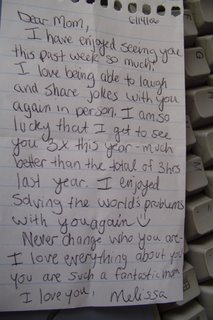 Dear Mom, 6/14/06
I have enjoyed seeing you
this past week so much!
I love being able to laugh
and share jokes with you
again in person. I am so
lucky that I get to see
you 3x this year - much
better than the total of 3 hrs
last year. I enjoyed
solving the world's problems
with you again
Never change who you are -
I love everything about you
you are such a fantastic mom
I love you, Melissa